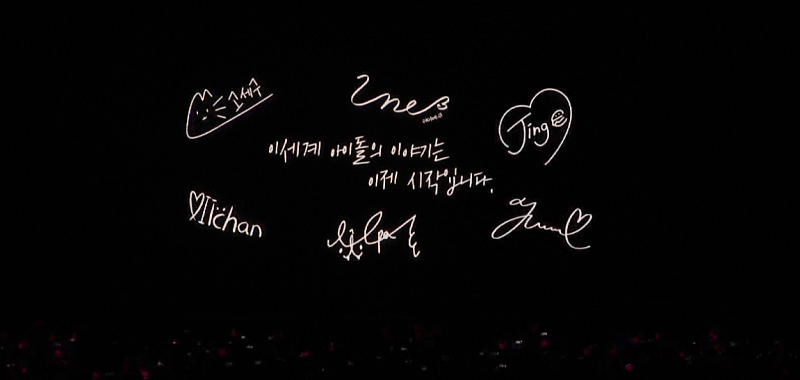 고세구
Ine
Jing
이세계 아이돌의 이야기는
이제 시작입니다.
♡IIchan